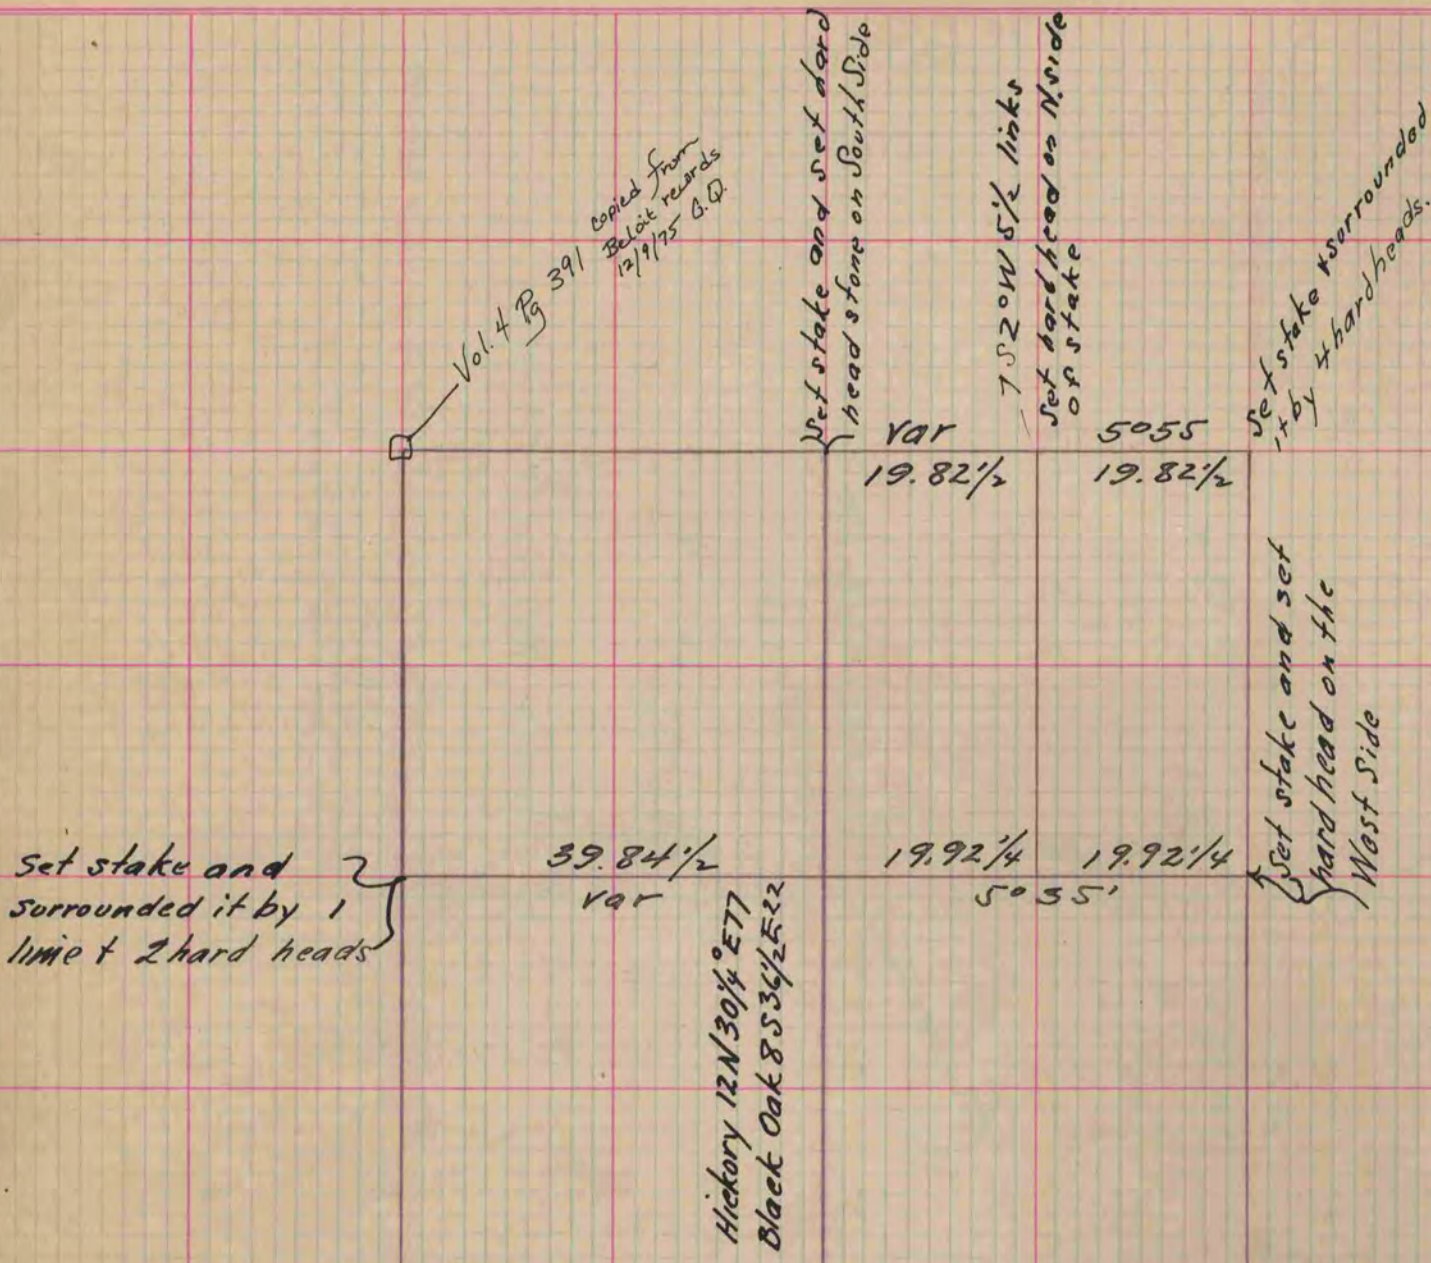 Vol. 4 Pg 391
copied from
Beloit records
12/9/75
Set stake and set hard
head stone on South Side
7 S2°W 5½ links
Set hard head on N. side
of stake
Set stake & sorrounded
it by 4 hard heads.
var
5°55
19.82½
19.82½
Set stake and set
hard head on the
West Side
Set stake and
surrounded it by 1
lime + 2 hard heads
39.84½
19.92¼
19.92¼
var
5° 35'
Hickory 12 N 30¼° E 77
Black Oak 8 S 36½ E 22